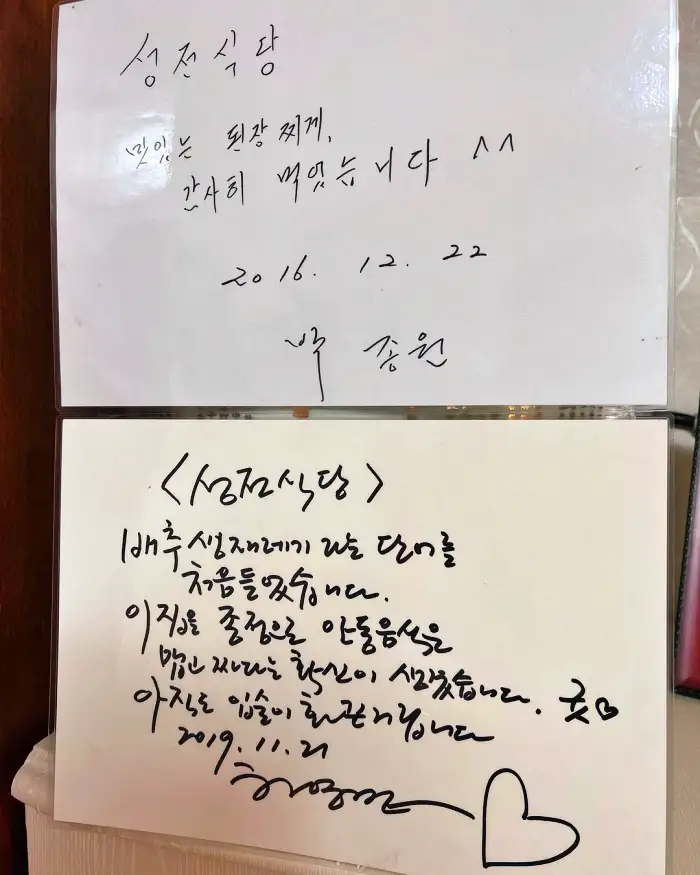 성전식당
맛있는 된장찌게,
간사히 먹었습니다 ^^
2016. 12. 22
백종원
<성전식당>
배추생재래기 라는 단어를
처음들었습니다.
이집을 종점으로 안동음식은
맵고 짜다는 확신이 생겼습니다. 굿♡
아직도 입술이 화끈거립니다
2019. 11. 21
허영만 ♡